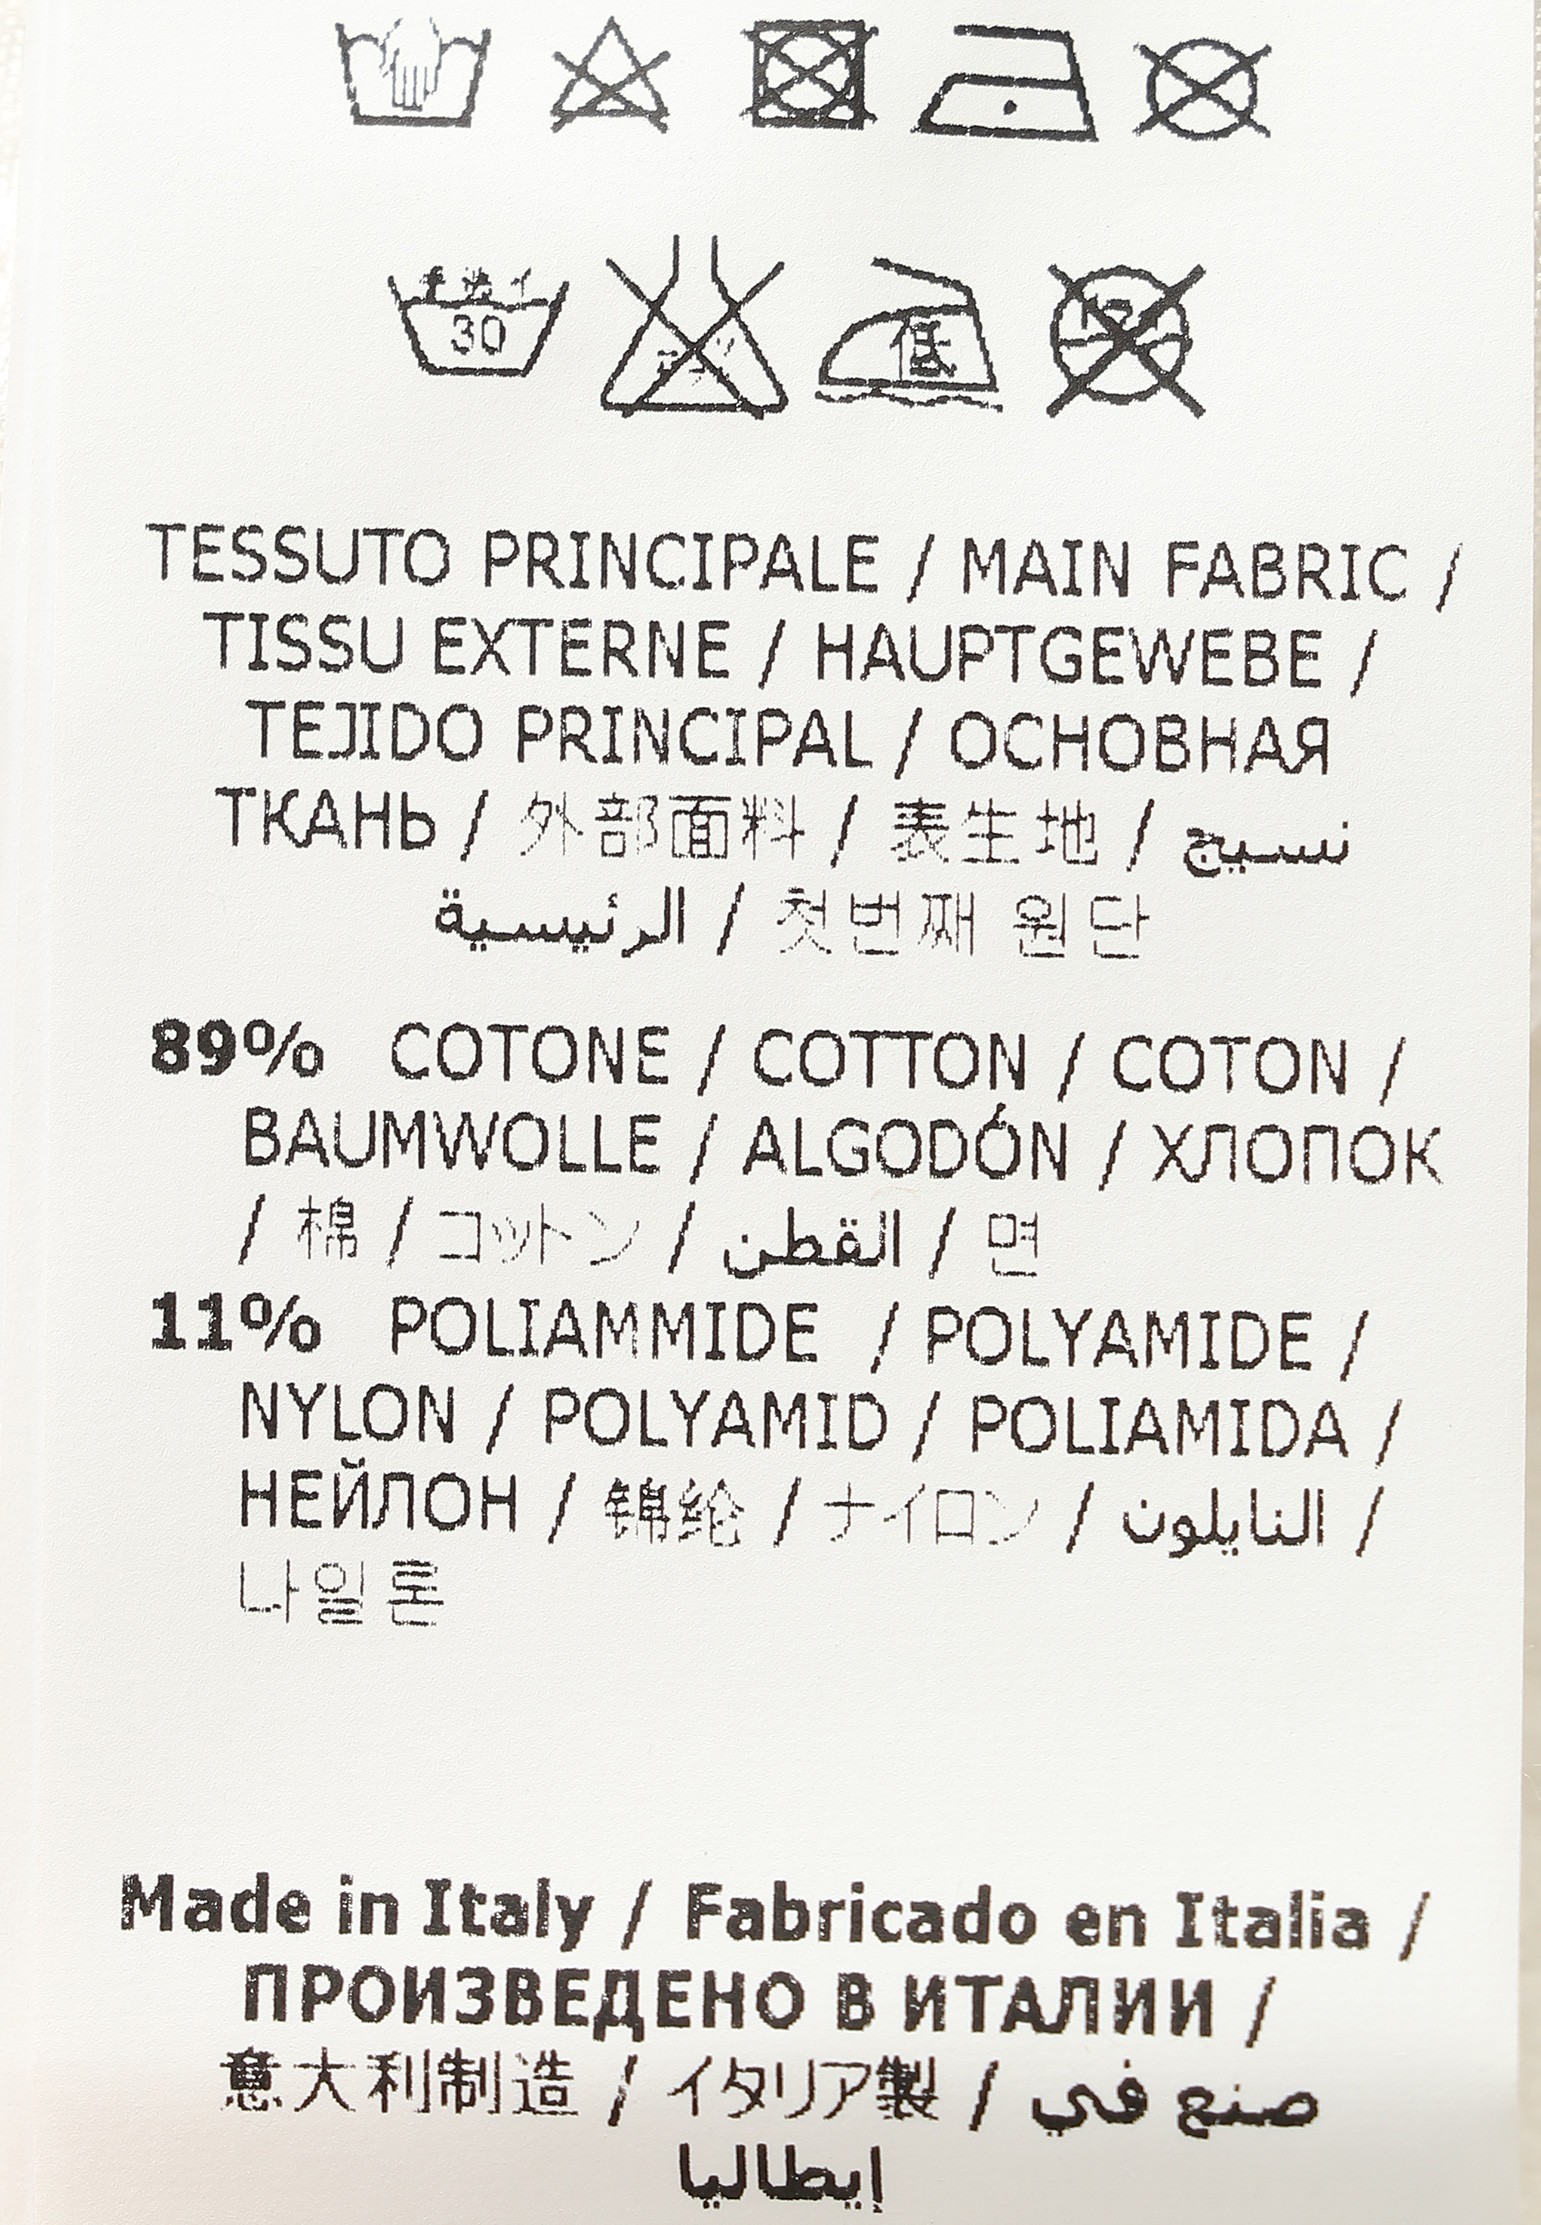 手洗イ
30
低
TESSUTO PRINCIPALE / MAIN FABRIC /
TISSU EXTERNE / HAUPTGEWEBE /
TEJIDO PRINCIPAL / ОСНОВНАЯ
ТКАНЬ / 外部面料 / 表生地 / نسيج
الرئيسية / 첫번째 원단
89% COTONE / COTTON / COTON /
BAUMWOLLE / ALGODÓN / ХЛОПОК
/ 棉 / コットン / القطن / 면
11% POLIAMMIDE / POLYAMIDE /
NYLON / POLYAMID / POLIAMIDA /
НЕЙЛОН / 锦纶 / ナイロン / النايلون /
나일론
Made in Italy / Fabricado en Italia /
ПРОИЗВЕДЕНО В ИТАЛИИ /
意大利制造 / イタリア製 / صنع في
إيطاليا